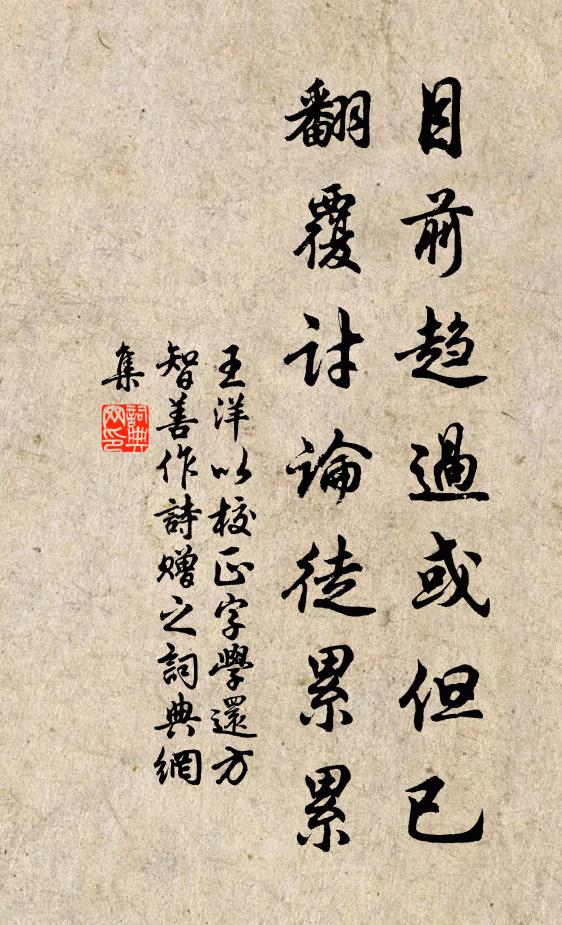 目前趋過或但已
翻覆討論徒累累
王洋以校正字學還方
智善作詩贈之詞典網
集
詞典網印